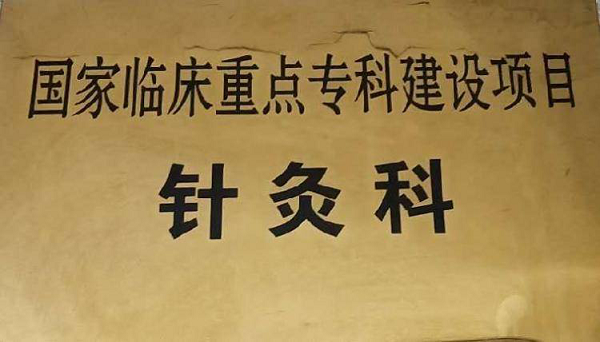 国家临床重点专科建设项目
针灸科